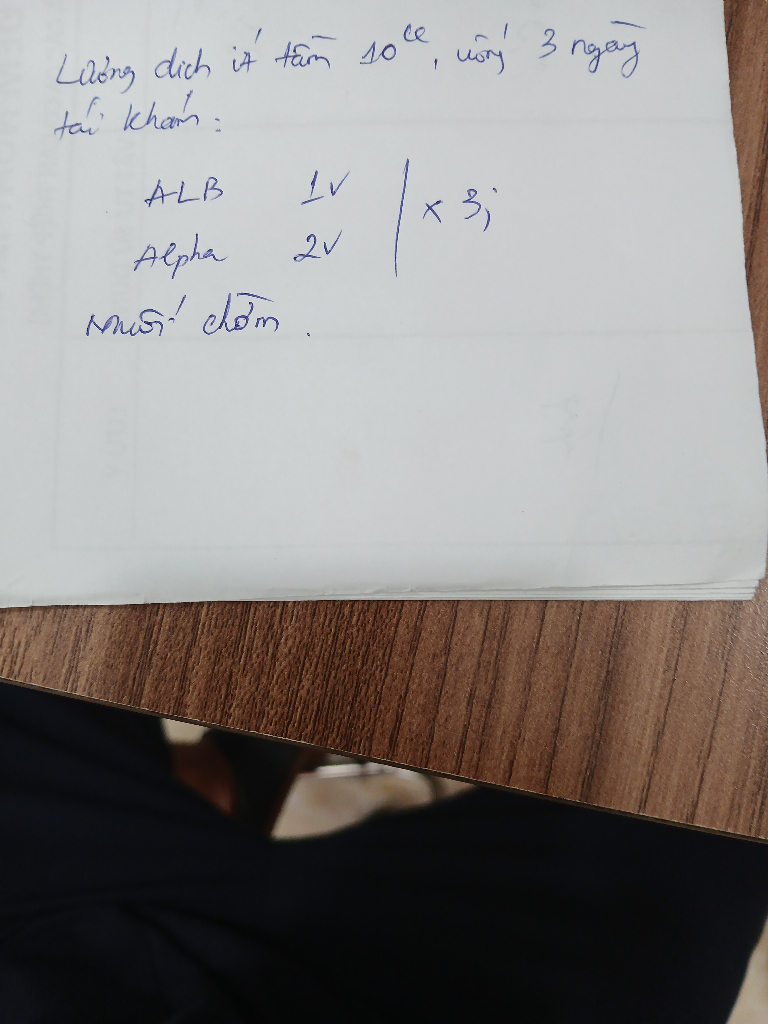 Lượng dịch ít tầm 10cc, uống 3 ngày
tái khám:
ALB 1v
Alpha 2v | x 3j
Muối chấm.